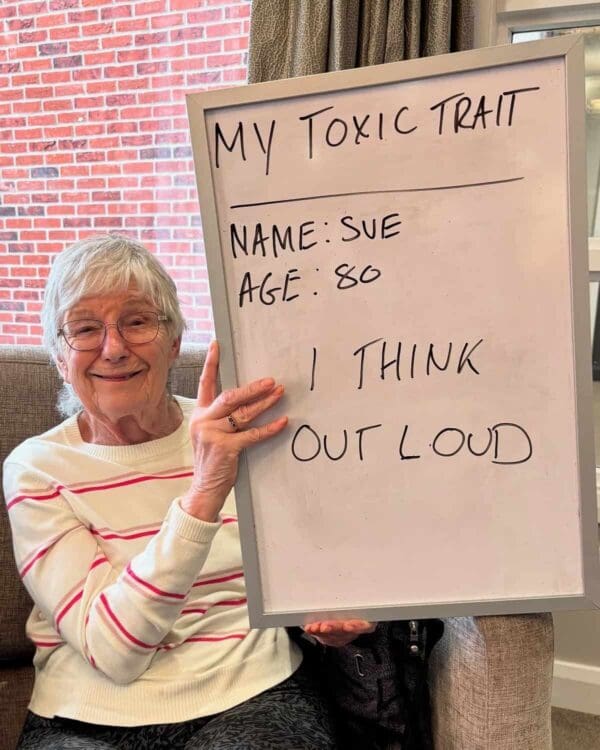 MY TOXIC TRAIT
NAME: SUE
AGE: 80
I THINK
OUT LOUD